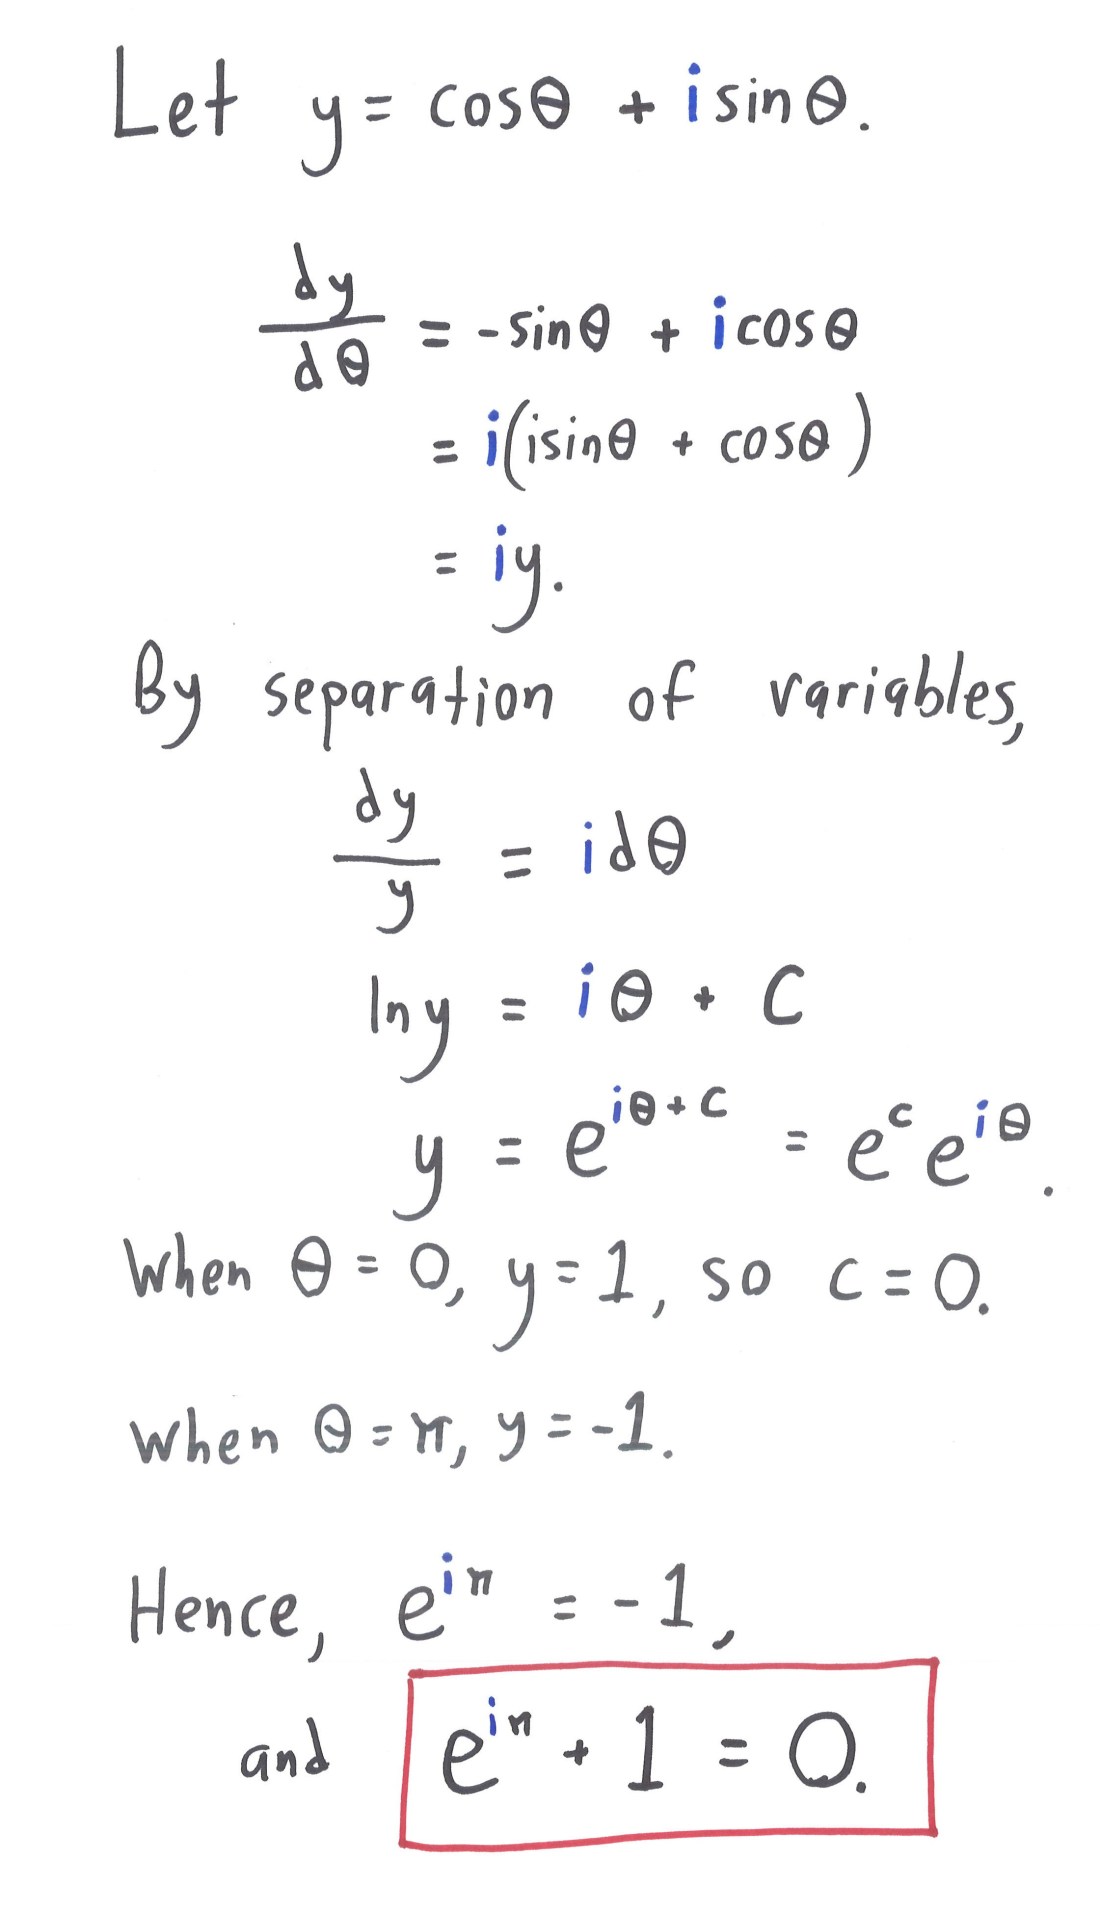 Let y = cosθ + isinθ.
dy/dθ = -sinθ + icosθ
= i(isinθ + cosθ)
= iy.
By separation of variables,
dy/y = idθ
lny = iθ + C
y = e^{iθ+C} = e^c e^{iθ}.
When θ = 0, y = 1, so c = 0.
When θ = π, y = -1.
Hence, e^{iπ} = -1,
and e^{iπ} + 1 = 0.